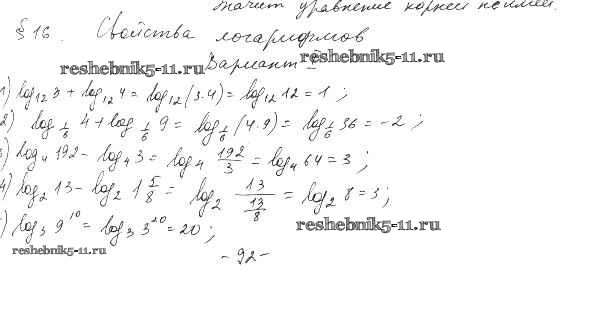 Значит уравнение корней не имеет.
§ 16. Свойства логарифмов
reshebnik5-11.ru Вариант reshebnik5-11.ru
1) log₁₂ 3 + log₁₂ 4 = log₁₂ (3·4) = log₁₂ 12 = 1 ;
2) log_{1/6} 4 + log_{1/6} 9 = log_{1/6} (4·9) = log_{1/6} 36 = -2 ;
3) log₄ 192 - log₄ 3 = log₄ 192/3 = log₄ 64 = 3 ;
4) log₂ 13 - log₂ 1 5/8 = log₂ 13/(13/8) = log₂ 8 = 3 ;
) log₃ 9¹⁰ = log₃ 3²⁰ = 20 ; reshebnik5-11.ru
reshebnik5-11.ru
- 92 -